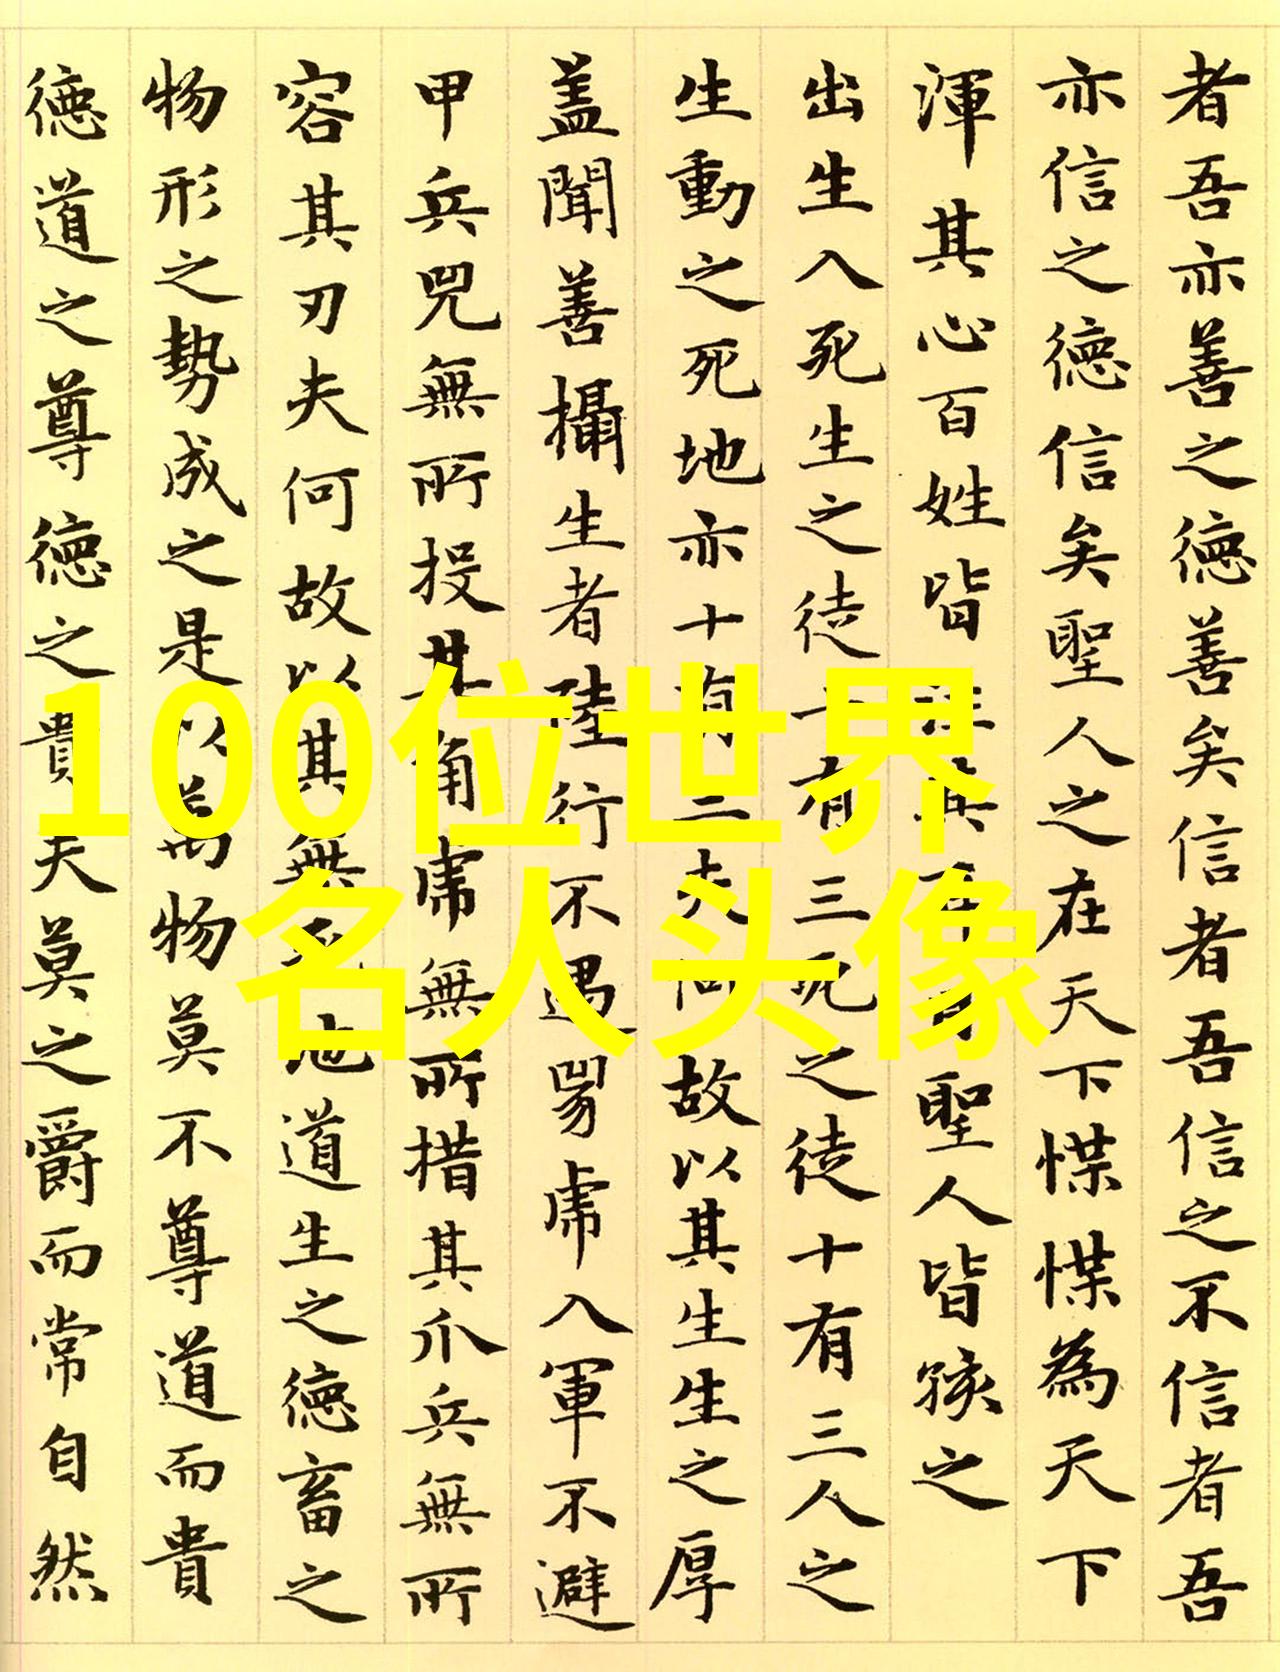 者吾亦善之德善矣信者吾信之不信者吾
亦信之德信矣聖人之在天下惵惵為天下
渾其心百姓皆注其耳目聖人皆孩之
出生入死生之徒十有三死之徒十有三人之
生動之死地亦十有三夫何故以其生生之厚
蓋聞善攝生者陸行不遇兕虎入軍不避
甲兵兕無所投其角虎無所措其爪兵無所
容其刃夫何故以其無死地道生之德畜之
物形之勢成之是以萬物莫不尊道而貴
德道之尊德之貴夫莫之爵而常自然
100位世界
名人头像